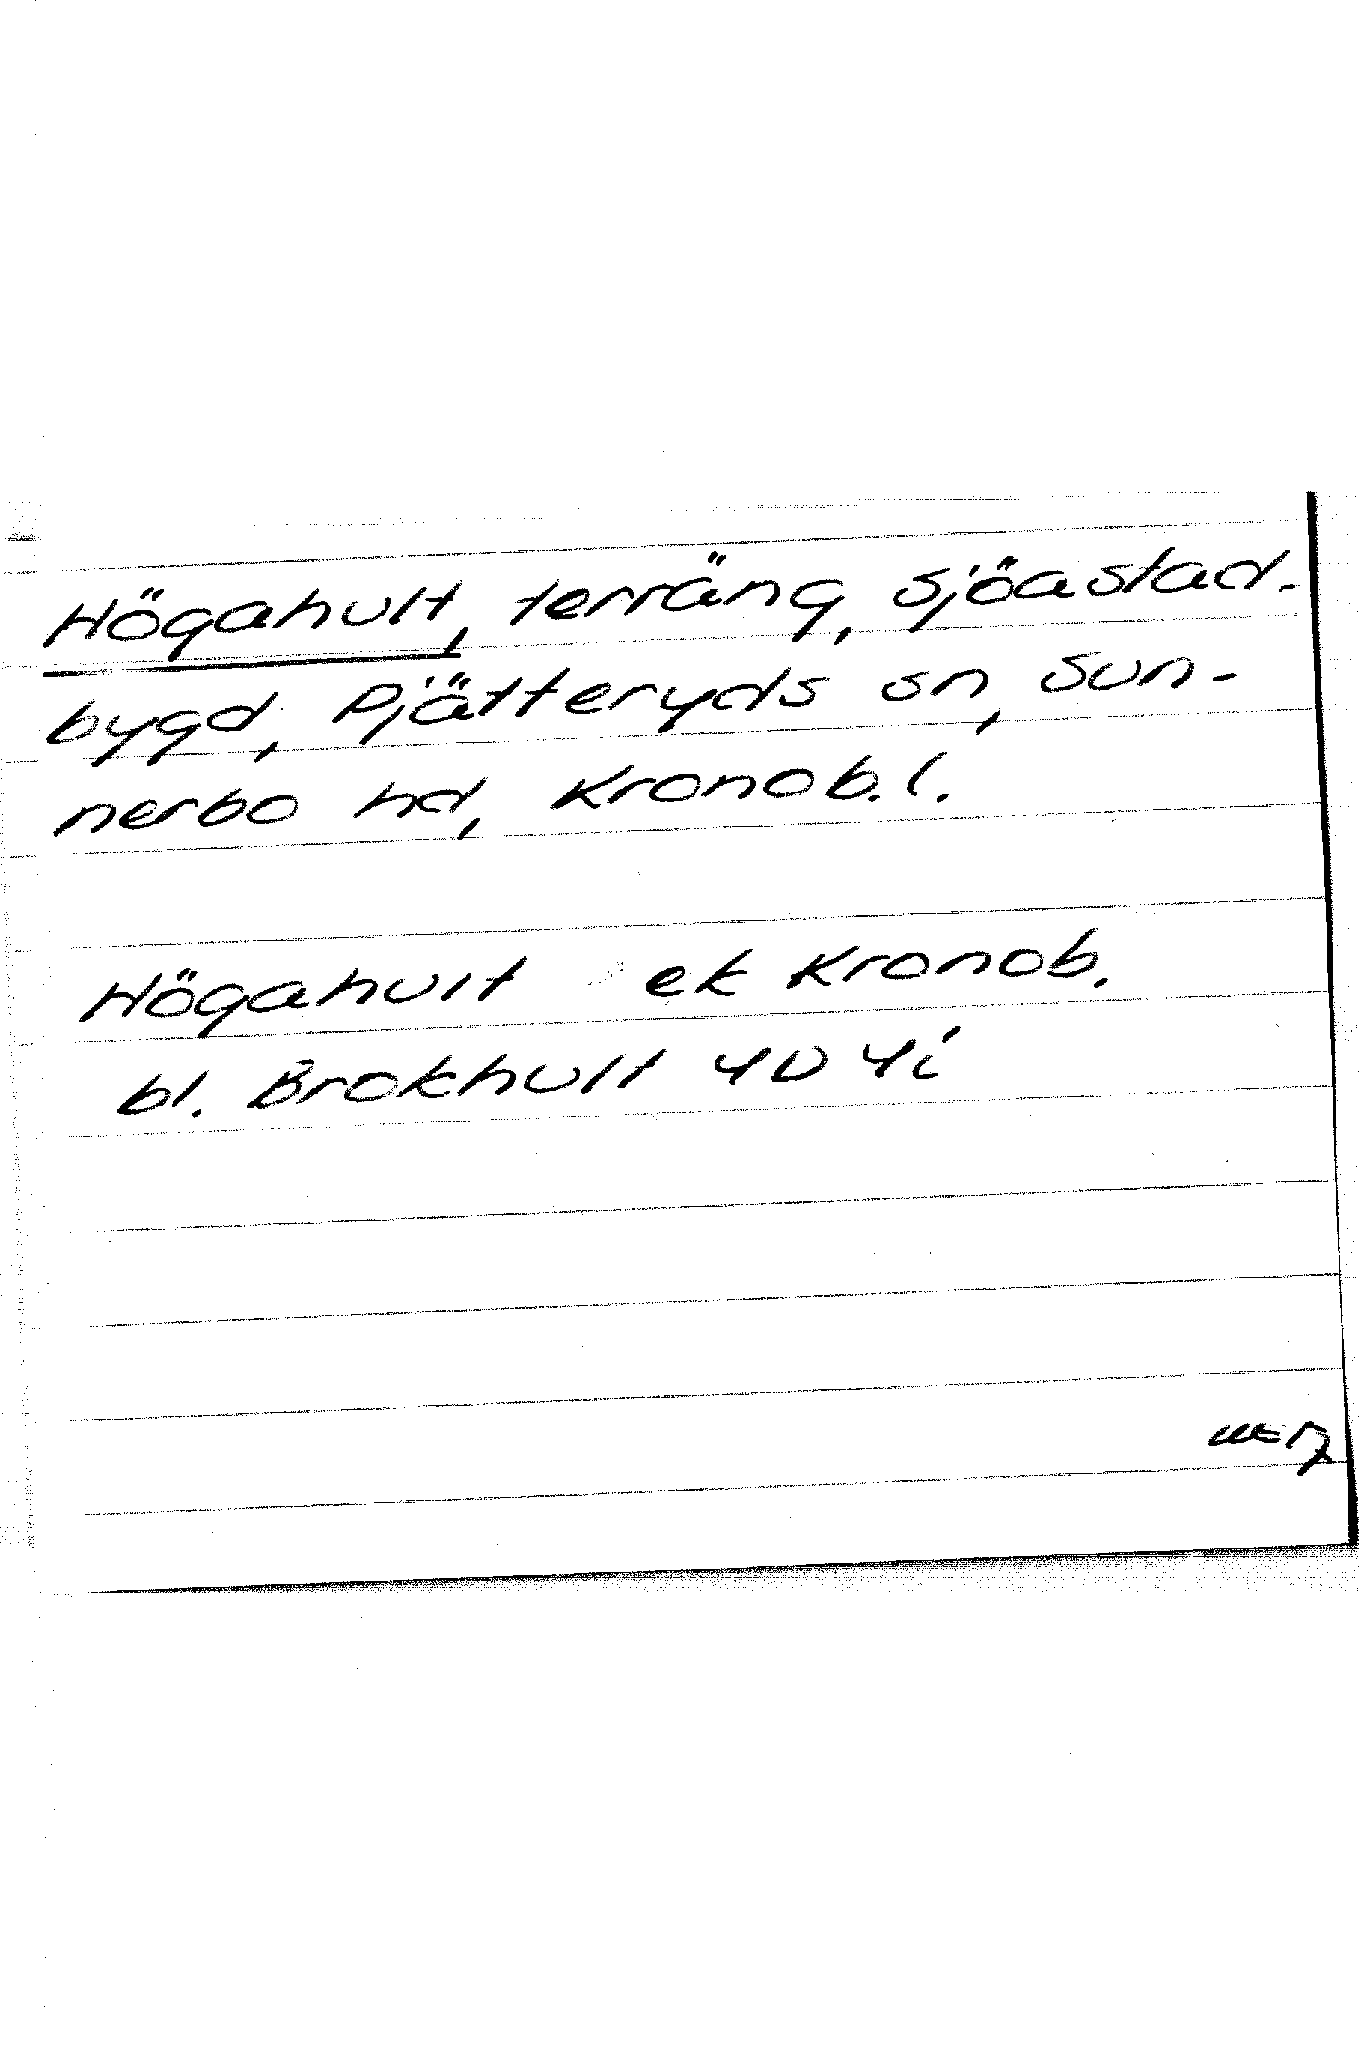 Högahult, terräng, Sjöastad.
bygd, Pjätteryds sn, Sun-
nerbo hd, Kronob. l.
Högahult ek Kronob.
bl. Brokhult 4D 4i